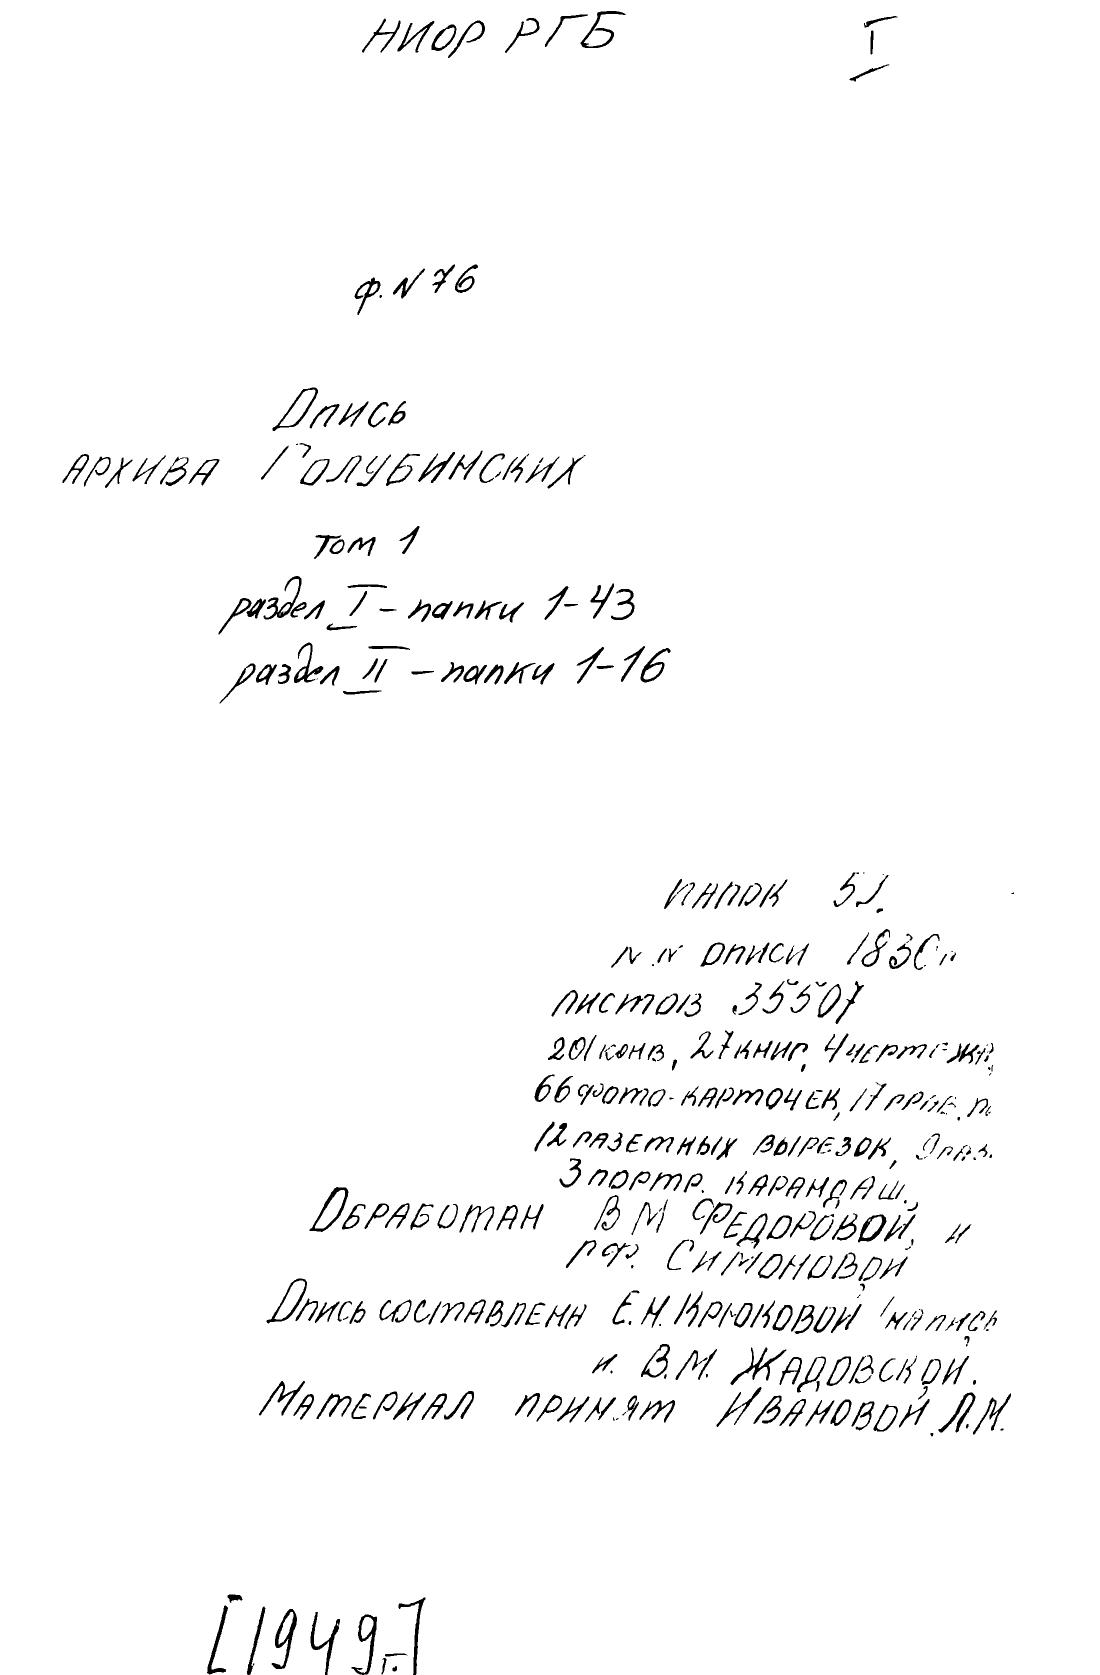 НИОР РГБ I
ф. N 76
Опись
архива Голубинских
том 1
раздел I - папки 1-43
раздел II - папки 1-16
папок
NN описи 1830
листов 35507
201 конв, 27 книг, 4 чертежа,
66 фото-карточек, 17
12 газетных вырезок,
3 портр. карандаш.,
Обработан В М Федоровой, и
Р Ф. Симоновой
Опись составлена Е.Н. Крюковой
и В.М. Жадовской.
Материал принят Ивановой Л.М.
[1949 г.]